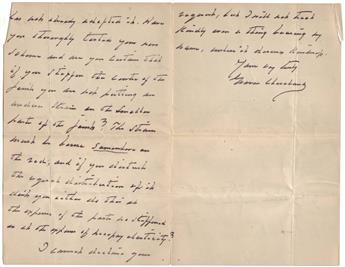 has not already adopted it. Have
you thoroughly tested your new
scheme and are you certain that
if you stiffen the centre of the
joint you are not putting an
undue strain on the smaller
part of the joint? The strain
must be borne somewhere on
the rod, and if you disturb
the equal distribution of it
don't you either do this at
the expense of the parts not stiffened
or at the expense of necessary elasticity?
I cannot decline your
request, but I will not
kindly over a thing bearing my
name, which I
Yours very truly
Grover Cleveland